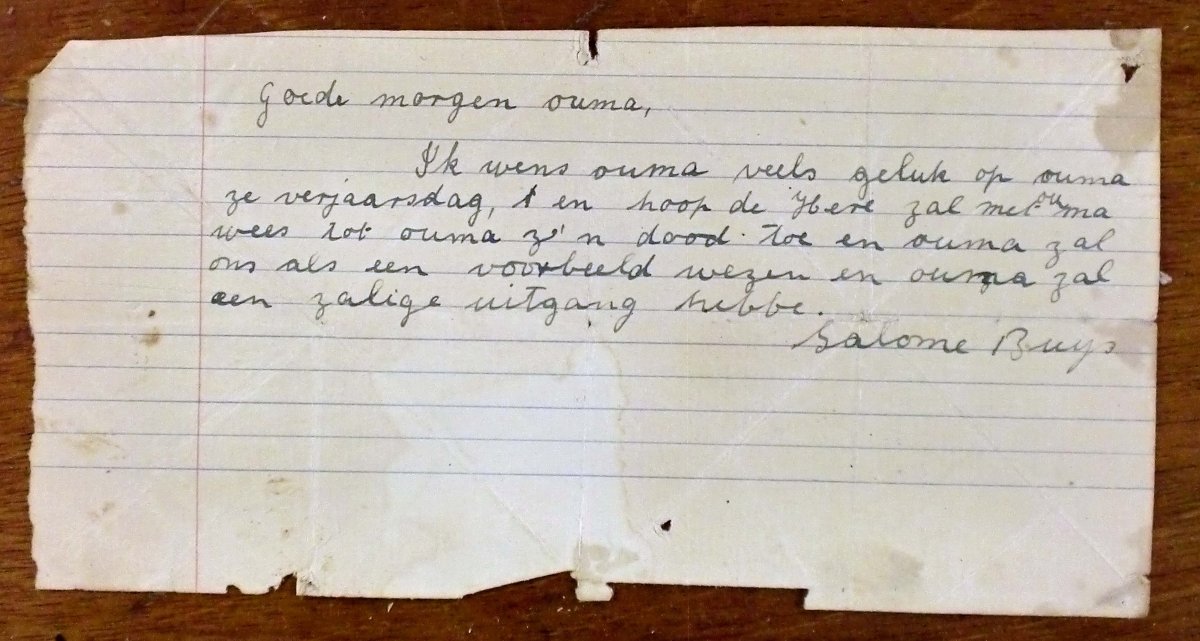 Goede morgen ouma,
Ik wens ouma veels geluk op ouma
ze verjaarsdag, en hoop de Here zal met ouma
wees tot ouma z'n dood toe en ouma zal
ons als een voorbeeld wezen en ouma zal
een zalige uitgang hebbe.
Salome Buys